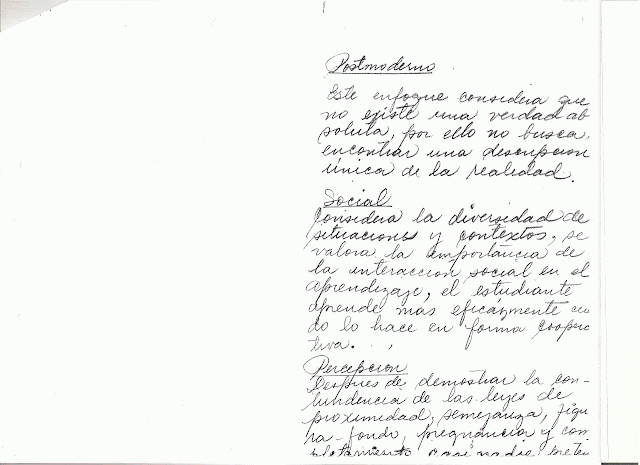 Postmoderno
Este enfoque considera que
no existe una verdad ab
soluta, por ello no busca
encontrar una descripcion
única de la realidad.
Social
Considera la diversidad de
situaciones y contextos, se
valora la importancia de
la interaccion social en el
aprendizaje, el estudiante
aprende mas eficázmente cu
do lo hace en forma coopera
tiva.
Percepcion
Despues de demostrar la con-
tundencia de las leyes de
proximidad, semejanza, figu
ra-fondo, pregnancia y com